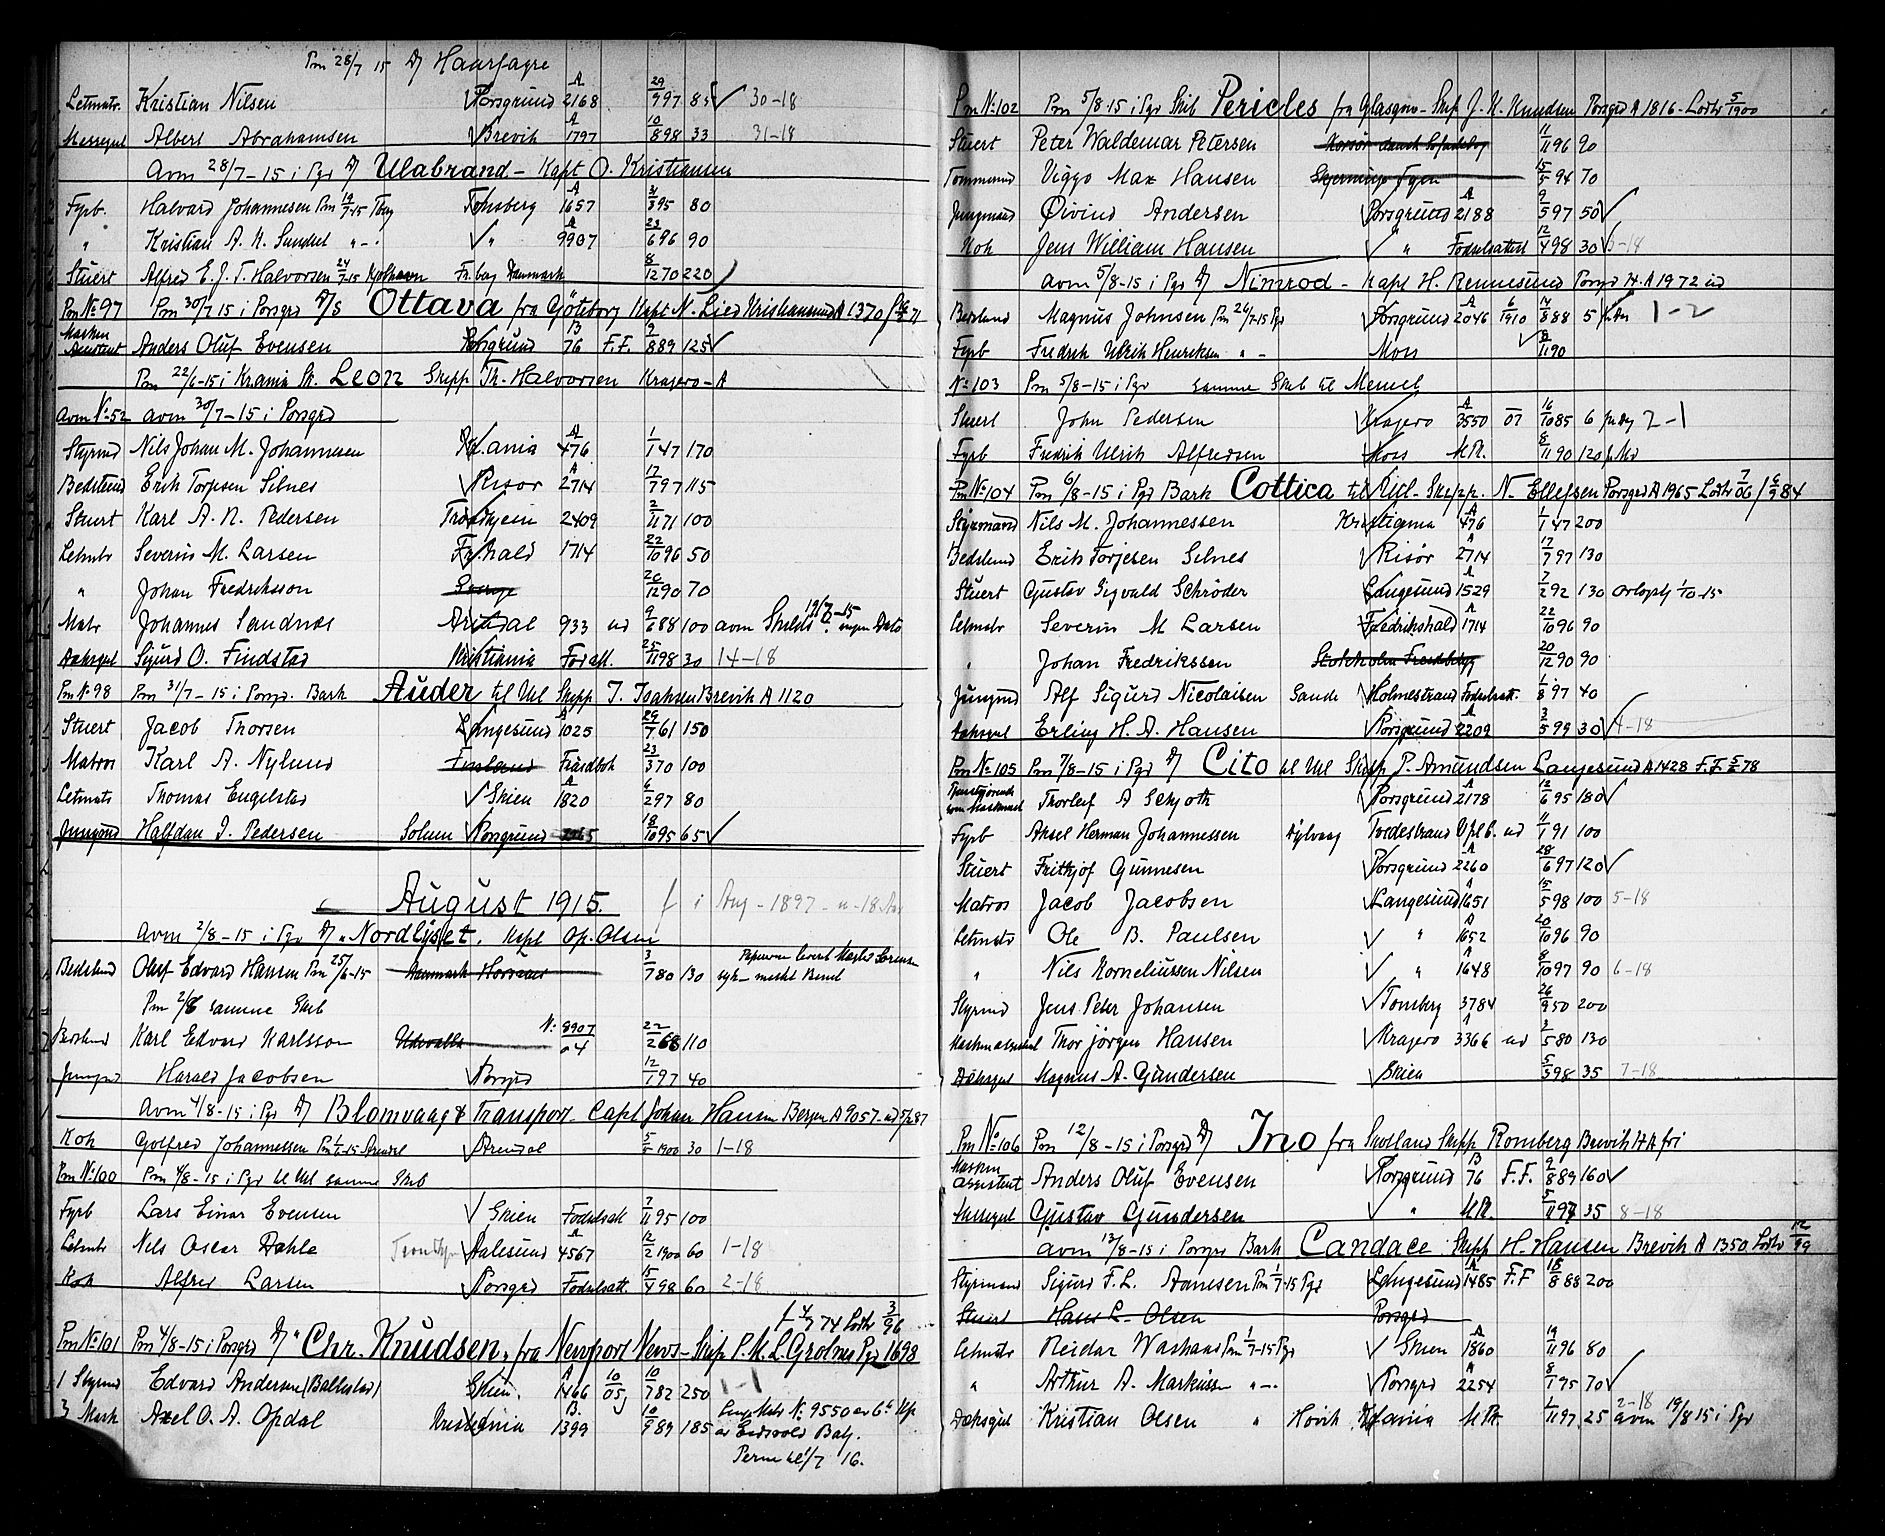 Pm 28/7 15 D/ Haarfagre
Letmatr. Kristian Nilsen Porsgrund A 2168 29/9 97 85 30-18
Messegut Albert Abrahamsen Brevik A 1797 10/8 98 33 31-18
Avm 28/7-15 i Pgr D/ Ulabrand - Kapt O. Kristiansen
Fyrb. Halvard Johannesen Pm Tbg Tønsberg A 1657 3/3 95 80
" Kristian A. N. Sundel " - . " A 9907 23/6 96 90
Stuert Alfred E. J. T. Halvorsen 24/7-15 Fr. berg Danmark 8/12 70 220
Pm No 97 Pm 30/7 15 i Porsgrd D/S Ottava fra Göteborg Kapt N. Lied Kristiansund A 1370
Maskin Assistent Anders Oluf Evensen Porsgrund B 76 F.F. 9/8 89 125
Pm 22/6-15 i Krania Sk. Leon Skipp Th. Halvorsen Kragerø - A
Avm No 52 avm 30/7-15 i Porsgrd
Styrmd Nils Johan M. Johannesen Kr.ania A 476 1/1 47 170
Bedstmd Erik Torjesen Silnes Risør A 2714 17/7 97 115
Stuert Karl A. N. Pedersen Trondhjem 2409 2/11 71 100
Letmtr Severin M. Larsen Fr.hald 1714 22/10 96 50
" Johan Fredriksson Sverige 20/12 90 70
Matr Johannes Sandnes Arendal 933 ud 9/6 88 100 avm
Dæksgut Sigurd O. Findstad Kristiania Fød att. 25/11 98 30 14-18
Pm No 98 Pm 31/7-15 i Porsgr. Bark Auder til Ml Skipp J. Isaksen Brevik A 1120
Stuert Jacob Thorsen Langesund A 1025 29/7 61 150
Matros Karl A. Nylund Finland 23/3 70 100
Letmatr Thomas Engelstad Skien A 1820 6/2 97 80
Jungmd Halfdan J. Pedersen Solum Porsgrund 18/10 95 65
August 1915. f i Aug - 1897 - u - 18 Aar
Avm 2/8-15 i Pgr D/ "Nordlyset". Kapt Op. Olsen
Bedstmd Oluf Edvard Hansen Pm 25/6-15 Danmark Horsens 3/7 80 130
Pm 2/8 samme Skib
Bedstmd Karl Edvard Karlsson Udevalla N: 8907/04 22/2 68 110
Jungmd Harald Jacobsen Porsgrd 12/1 97 40
Avm 4/8-15 i Pgr D/ Blomvaag & Transport. Capt Johan Hansen Bergen A 9057
Kok Golfred Johannessen Arendal 5/5 1900 30 1-18
Pm No 100 Pm 4/8-15 i Pgr til Ml samme Skib
Fyrb Lars Einar Evensen Skien Fødselsatt 7/11 95 100
Letmtr Nils Oscar Dahle Aalesund A 4567 12/2 1900 60 1-18
Kok Alfred Larsen Porsgrd Fødselsatt. 15/4 98 60 2-18
74 Lødtr 3/96
Pm No 101 Pm 4/8-15 i Porsgrd D/ "Chr. Knudsen" fra Newport News - Skip P. M. L. Grolner Pgr 1698
1 Styrmd Edvard Andersen (Ballestad) Skien A 1466 10/05 10/7 82 250 1-1
3 Mask Axel O. A. Opdal Kristiania B. 1399 10/9 89 185
Perm til 1/7 16.
Pm No 102 Pm 5/8 15 i Pgr Skib Pericles fra Glasgow - Skip J. N. Knudsen Porsgrd A 1816 - Lødtr 5/1900
Stuert Peter Waldemar Petersen Korsør dansk 11/11 96 90
Tømmermd Viggo Max Hansen Fyen 15/5 94 70
Jungmand Øivind Andersen Porsgrund A 2188 9/5 97 50
Kok Jens William Hansen " Fødselsattest 12/4 98 30
avm 5/8-15 i Pgr D/ Nimrod - Kapt H. Rennesund Porsgr A 1972 ud
Bedstmd Magnus Johnsen Pm 26/7-15 Pgr Porsgrund A 2046 6/1910 14/8 88 5 1-2
Fyrb Fredrik Ulrik Henriksen " - Moss 8/11 90
No 103 Pm 5/8-15 i Pgr samme Skib til Memel
Stuert John Pedersen Kragerø A 3550 07 16/10 85 6 2-1
Fyrb Fredrik Ulrik Alfredsen Moss M.R. 8/11 90 120
Pm No 104 Pm 6/8-15 i Pgr Bark Cottica til Ml. Skipp. N. Ellefsen Porsgrd A 1965 Lødtr 7/06 84
Styrmand Nils M. Johannessen Kristiania A 476 1/1 47 200
Bedstmd Erik Torjesen Silnes Risør A 2714 17/7 97 130
Stuert Gustav Sigvald Schrøder Langesund A 1529 7/2 92 130
Letmatr Severin M Larsen Fredrikshald A 1714 22/10 96 90
" Johan Fredrikssen Stokholm 20/12 90 90
Jungmd Alf Sigurd Nicolaisen Sande Holmestrand Fødselsatt. 1/8 97 40
Dæksgut Erling H. A. Hansen Porsgrund A 2209 3/5 99 30 4-18
Pm No 105 Pm 7/8-15 i Pgr D/ Cito til Ml Skipp P. Amundsen Langesund A 1428 F.F. 78
Thorleif A Schjøth Porsgrund A 2178 12/6 95 180
Fyrb Aksel Herman Johannessen Tvedestrand ud 11/1 91 100
Stuert Frithjof Gunnesen Porsgrund A 2260 28/6 97 120
Matros Jacob Jacobsen Langesund A 1651 15/5 98 100 5-18
Letmatr Ole B. Paulsen " A 1652 20/10 96 90
" Nils Korneliussen Nilsen " A 1648 8/10 97 90 6-18
Styrmd Jens Peter Johansen Tønsberg 3784 26/9 50 200
Thor Jørgen Hansen Kragerø A 3366 ud 2/5 80 130
Dæksgut Magnus A. Gundersen Skien 5/3 98 35 7-18
Pm No 106 Pm 12/8-15 i Porsgrd D/ Ino fra Skotland Skipp Romberg Brevik
Maskin assistent Anders Oluf Evensen Porsgrund B 76 F.F. 9/8 89 160
Messegut Gustav Gundersen " M.R. 5/11 97 35 8-18
avm 12/8-15 i Porsgr Bark Candace Skipp H. Hansen Brevik A 1350 Lødtr 12/99
Styrmand Sigurd F. L. Aanesen Pm 1/7-15 Pgr Langesund A 1485 F.F 18/8 88 200
Stuert Hans L. Olsen Porsgrd
Letmatr Reidar Warhaas Pm 1/7-15 Pgr Skien A 1860 19/11 96 80
" Arthur A. Markussen " - . Porsgrd A 2254 8/1 95 70
Dæksgut Kristian Olsen " Høvik Kr.ania M.R. 11 97 25 2-18 avm 19/8 15 i Pgr